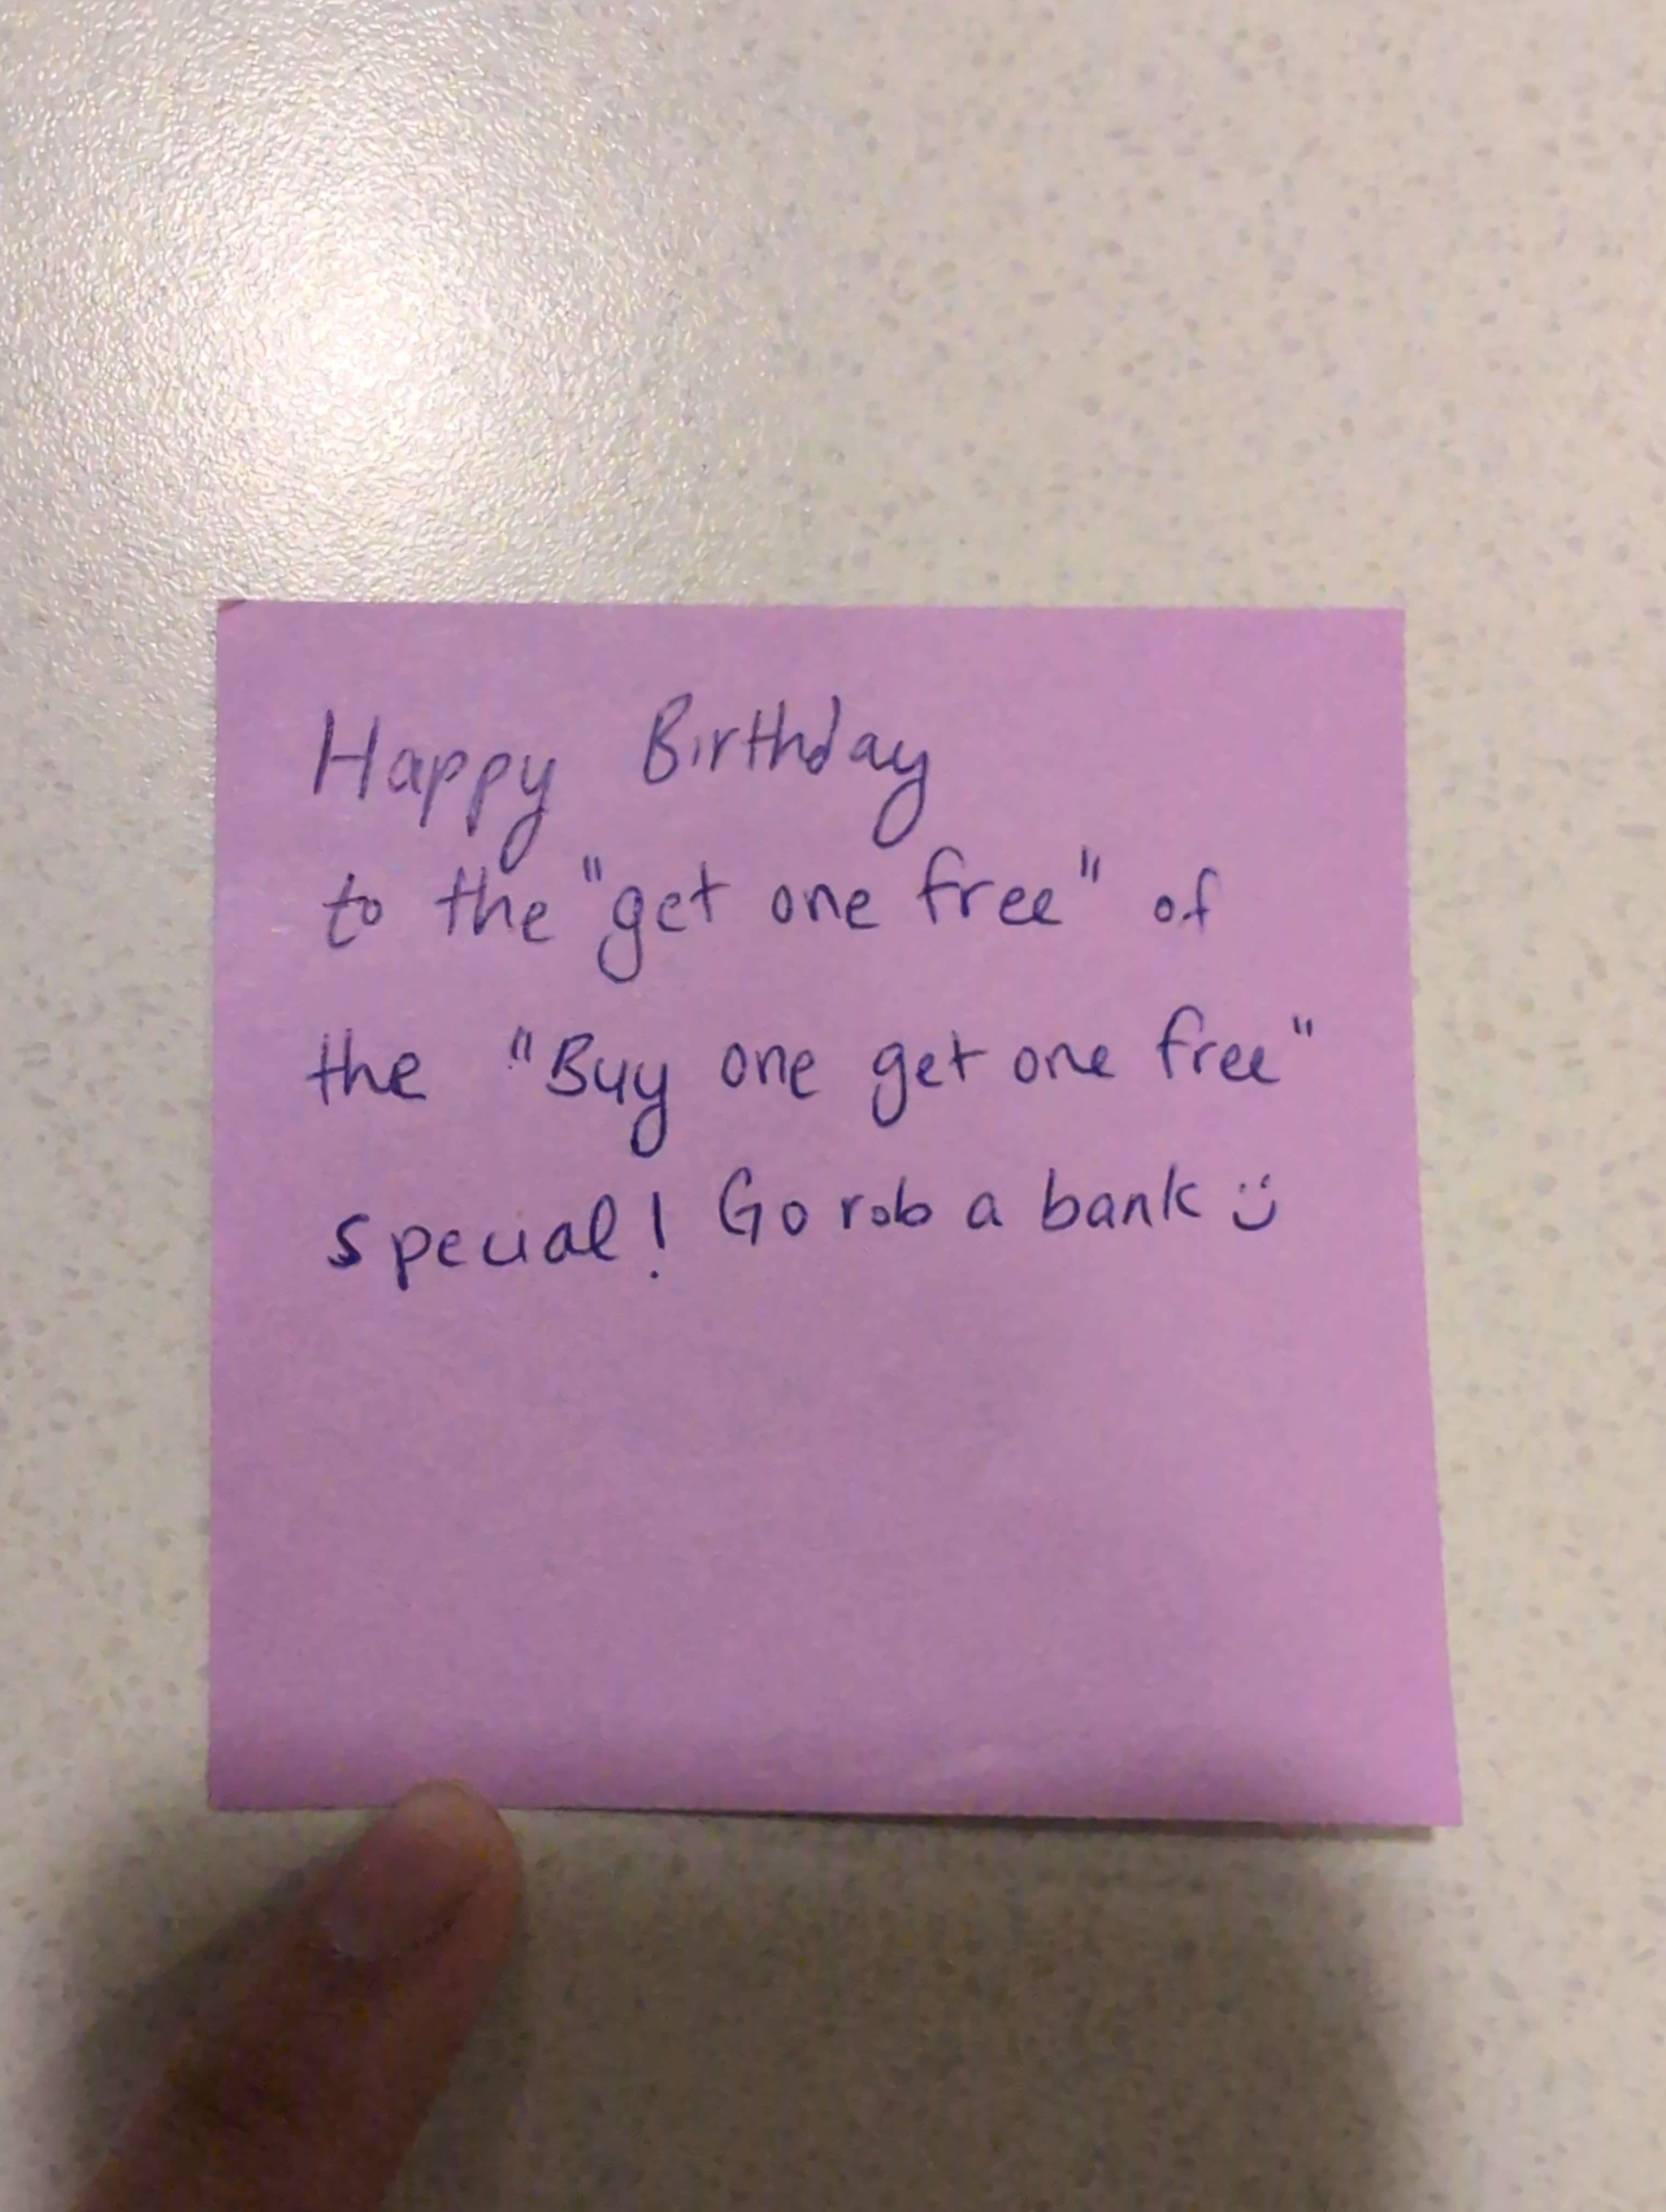 Happy Birthday
to the "get one free" of
the "Buy one get one free"
special! Go rob a bank :)